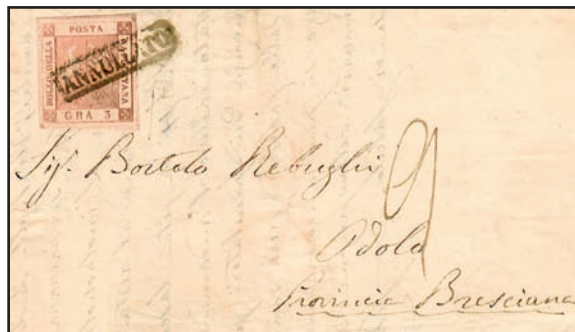 POSTA
BOLLO DELLA
NAPOLETANA
GRA 5
ANNULLATO
9
Sig. Bortolo Rebuglii
Odolo
Provincia Bresciana